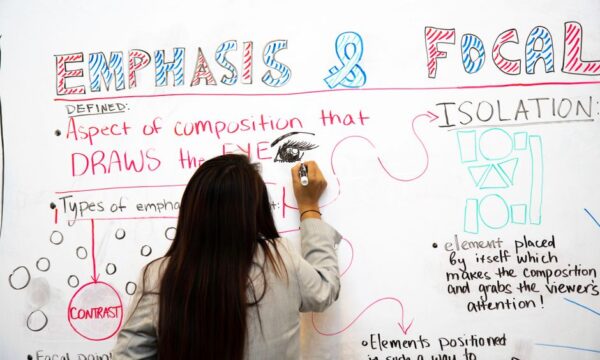 EMPHASIS & FOCAL
DEFINED:
• Aspect of composition that
DRAWS the EYE
• Types of emphasis
CONTRAST
ISOLATION:
• element placed
by itself which
makes the composition
and grabs the viewer's
attention!
• Elements positioned
in such a way to